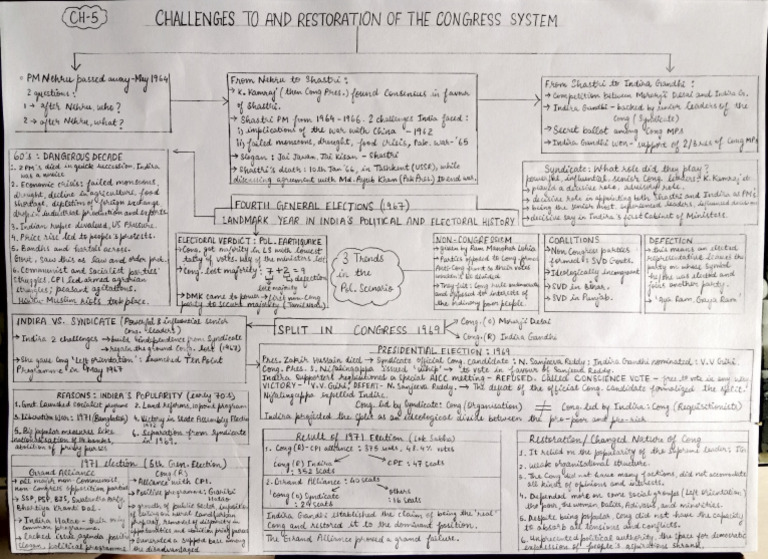 CH-5
CHALLENGES TO AND RESTORATION OF THE CONGRESS SYSTEM
PM Nehru passed away - May 1964
2 questions:
1 → after Nehru, who?
2 → after Nehru, what?
From Nehru to Shastri:
→ K. Kamraj (then Cong Pres.) found consensus in favour
of Shastri.
→ Shastri PM from 1964-1966. 2 challenges India faced:
i) implications of the war with China - 1962
ii) failed monsoons, drought, food crisis, Pak. war - '65
→ Slogan: Jai Jawan, Jai Kisan - Shastri
→ Shastri's death: 10th Jan '66, in Tashkent (USSR), while
discussing agreement with Md. Ayub Khan (Pak Pres) to end war.
From Shastri to Indira Gandhi:
→ Competition between Morarji Desai and Indira G.
→ Indira Gandhi - backed by senior leaders of the
Cong (Syndicate)
→ Secret ballot among Cong MPs
→ Indira Gandhi won - support of 2/3rds of Cong MPs
60's: DANGEROUS DECADE
1. 2 PM's died in quick succession, Indira
was a novice
2. Economic crisis: failed monsoons,
drought, decline in agriculture, food
shortage, depletion of foreign exchange
drop in industrial production and exports.
3. Indian rupee devalued, US Pressure.
4. Price rise led to people's protests.
5. Bandhs and hartals across.
Govt. saw this as law and order prob.
6. Communist and Socialist parties'
struggles, CPI led armed agrarian
struggles; peasant agitations.
Hindu Muslim riots took place.
Syndicate: What role did they play?
powerful, influential, senior Cong. leaders, K. Kamraj etc
→ played a decisive role, advisory role.
→ decisive role in appointing both Shastri and Indira as PM's
→ decisive say in Indira's first Cabinet of Ministers.
FOURTH GENERAL ELECTIONS (1967)
LANDMARK YEAR IN INDIA'S POLITICAL AND ELECTORAL HISTORY
ELECTORAL VERDICT: POL. EARTHQUAKE
→ Cong. got majority in LS with lowest
tally of votes. July of the ministers lost
→ Cong. lost majority: 7+2 = 9
defection
lost majority
→ DMK came to power → first non-Cong
party to secure majority (Tamil Nadu).
3 Trends
in the
Pol. Scenario
NON-CONGRESSISM
→ given by Ram Manohar Lohia
→ Parties opposed to Cong formed
Anti-Cong front so their votes
wouldn't be divided
→ They felt: Cong rule undemocratic
and opposed to interests of
the ordinary poor people.
COALITIONS
→ Non Congress parties
formed - SVD Govts.
→ Ideologically incongruent
→ SVD in Bihar.
→ SVD in Punjab.
DEFECTION
→ this means an elected
representative leaves the
party on whose symbol
he/she was elected and
joins another party.
→ 'Aya Ram, Gaya Ram'
INDIRA VS. SYNDICATE (Powerful & influential senior
Cong. leaders)
→ Indira 2 challenges → build independence from Syndicate
→ regain the ground Cong. lost (1967)
→ She gave Cong 'left orientation': launched Ten Point
Programme in May 1967
SPLIT IN CONGRESS 1969
Cong. (O) Morarji Desai
Cong. (R) Indira Gandhi
PRESIDENTIAL ELECTION: 1969
Pres. Zakir Hussain died → Syndicate official Cong. candidate: N. Sanjeeva Reddy; Indira Gandhi nominated: V.V Giri.
Cong. Pres. S. Nijalingappa issued 'whip' → to vote in favour of Sanjeeva Reddy.
Indira Supporters requisitioned a Special AICC meeting - REFUSED. Called CONSCIENCE VOTE -
VICTORY - 'V.V. Giri', DEFEAT - N. Sanjeeva Reddy. → The defeat of the official Cong. candidate formalised the split.
Nijalingappa expelled Indira.
Cong. led by Syndicate: Cong (Organisation) ≠ Cong. led by Indira: Cong (Requisitionists)
Indira projected the split as an ideological divide between the pro-poor and pro-rich.
REASONS: INDIRA'S POPULARITY (early 70's)
1. Govt. launched socialist prog
2. Land reforms, 10 point program
3. Liberation War: 1971 (Bangladesh)
4. Victory in State Assembly Election
1972
5. Big popular measures like
nationalisation of 14 banks,
abolition of privy purses
6. Separation from Syndicate
in 1969.
1971 election (5th Gen. Election)
Grand Alliance
→ all major non-Communist
non-Congress opposition parties
→ SSP, PSP, BJS, Swatantra Party,
Bhartiya Kranti Dal.
→ 'Indira Hatao' - their only
common programme.
→ Lacked issue, agenda, positive
slogan, political programme
Cong (R)
→ Alliance with CPI.
→ Positive programme: Garibi
Hatao
→ growth of public sector, imposition
ceiling on rural land & urban
property, removal of disparity in
opportunities and abolish privy purses
→ Generated a support base among
the disadvantaged
Result of 1971 Election (Lok Sabha)
1. Cong (R) - CPI alliance: 375 seats, 48.4% votes
Cong (R) Indira
: 352 Seats
CPI: 47 Seats
2. Grand Alliance: 40 seats
Cong (O) Syndicate
: 24 Seats
others
: 16 Seats
Indira Gandhi established the claim of being the 'real'
Cong and restored it to the dominant position.
The Grand Alliance proved a grand failure.
Restoration/Changed Nature of Cong
1. It relied on the popularity of the supreme leader:
2. Weak organizational structure.
3. The Cong did not have many factions, did not accommodate
all kinds of opinions and interests.
4. Depended more on some social groups (Left orientation)
the poor, the women, Dalits, Adivasis, and minorities.
5. Despite being popular, Cong did not have the capacity
to absorb all tensions and conflicts.